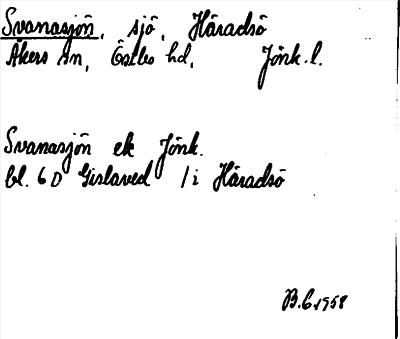 Svanasjön, sjö, Häradsö
Åkers sn, Östbo hd, Jönk. l.
Svanasjön ek Jönk.
bl. 6D Gislaved / i Häradsö
B.C. 1958